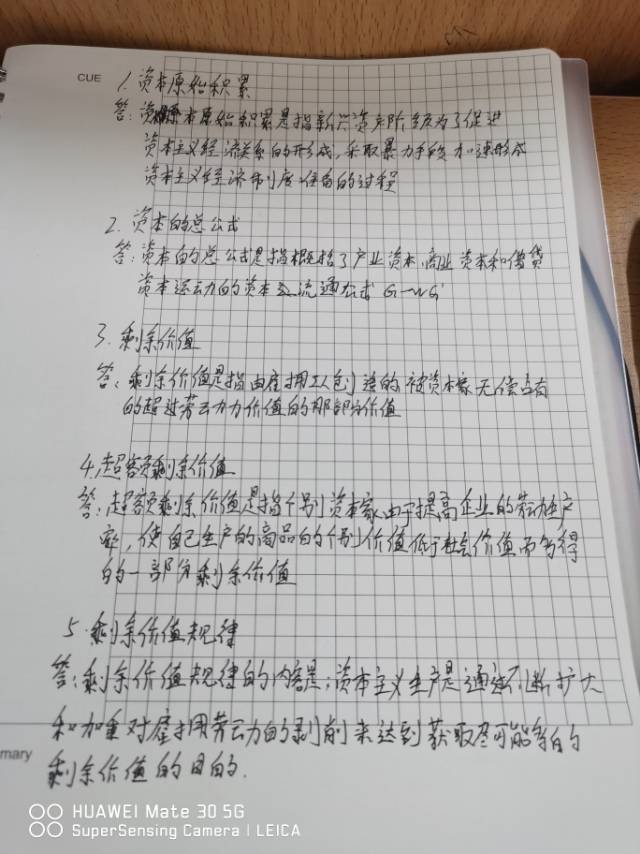 CUE
1. 资本原始积累
答:资本原始积累是指新兴资产阶级为了促进
资本主义经济关系的形成,采取暴力手段加速形成
资本主义经济制度 的过程
2. 资本的总公式
答:资本的总公式是指概括了产业资本、商业资本和借贷
资本运动的资本 流通公式 G—W—G'
3. 剩余价值
答:剩余价值是指由雇拥工人创造的被资本家无偿占有
的超过劳动力价值的那部分价值
4. 超额剩余价值
答:超额剩余价值是指个别资本家由于提高企业的劳动生产
率,使自己生产的商品的个别价值低于社会价值而多得
的一部分剩余价值
5. 剩余价值规律
答:剩余价值规律的内容是:资本主义生产是通过不断扩大
和加重对雇拥劳动力的剥削来达到获取尽可能多的
mary
剩余价值的目的.
HUAWEI Mate 30 5G
SuperSensing Camera | LEICA